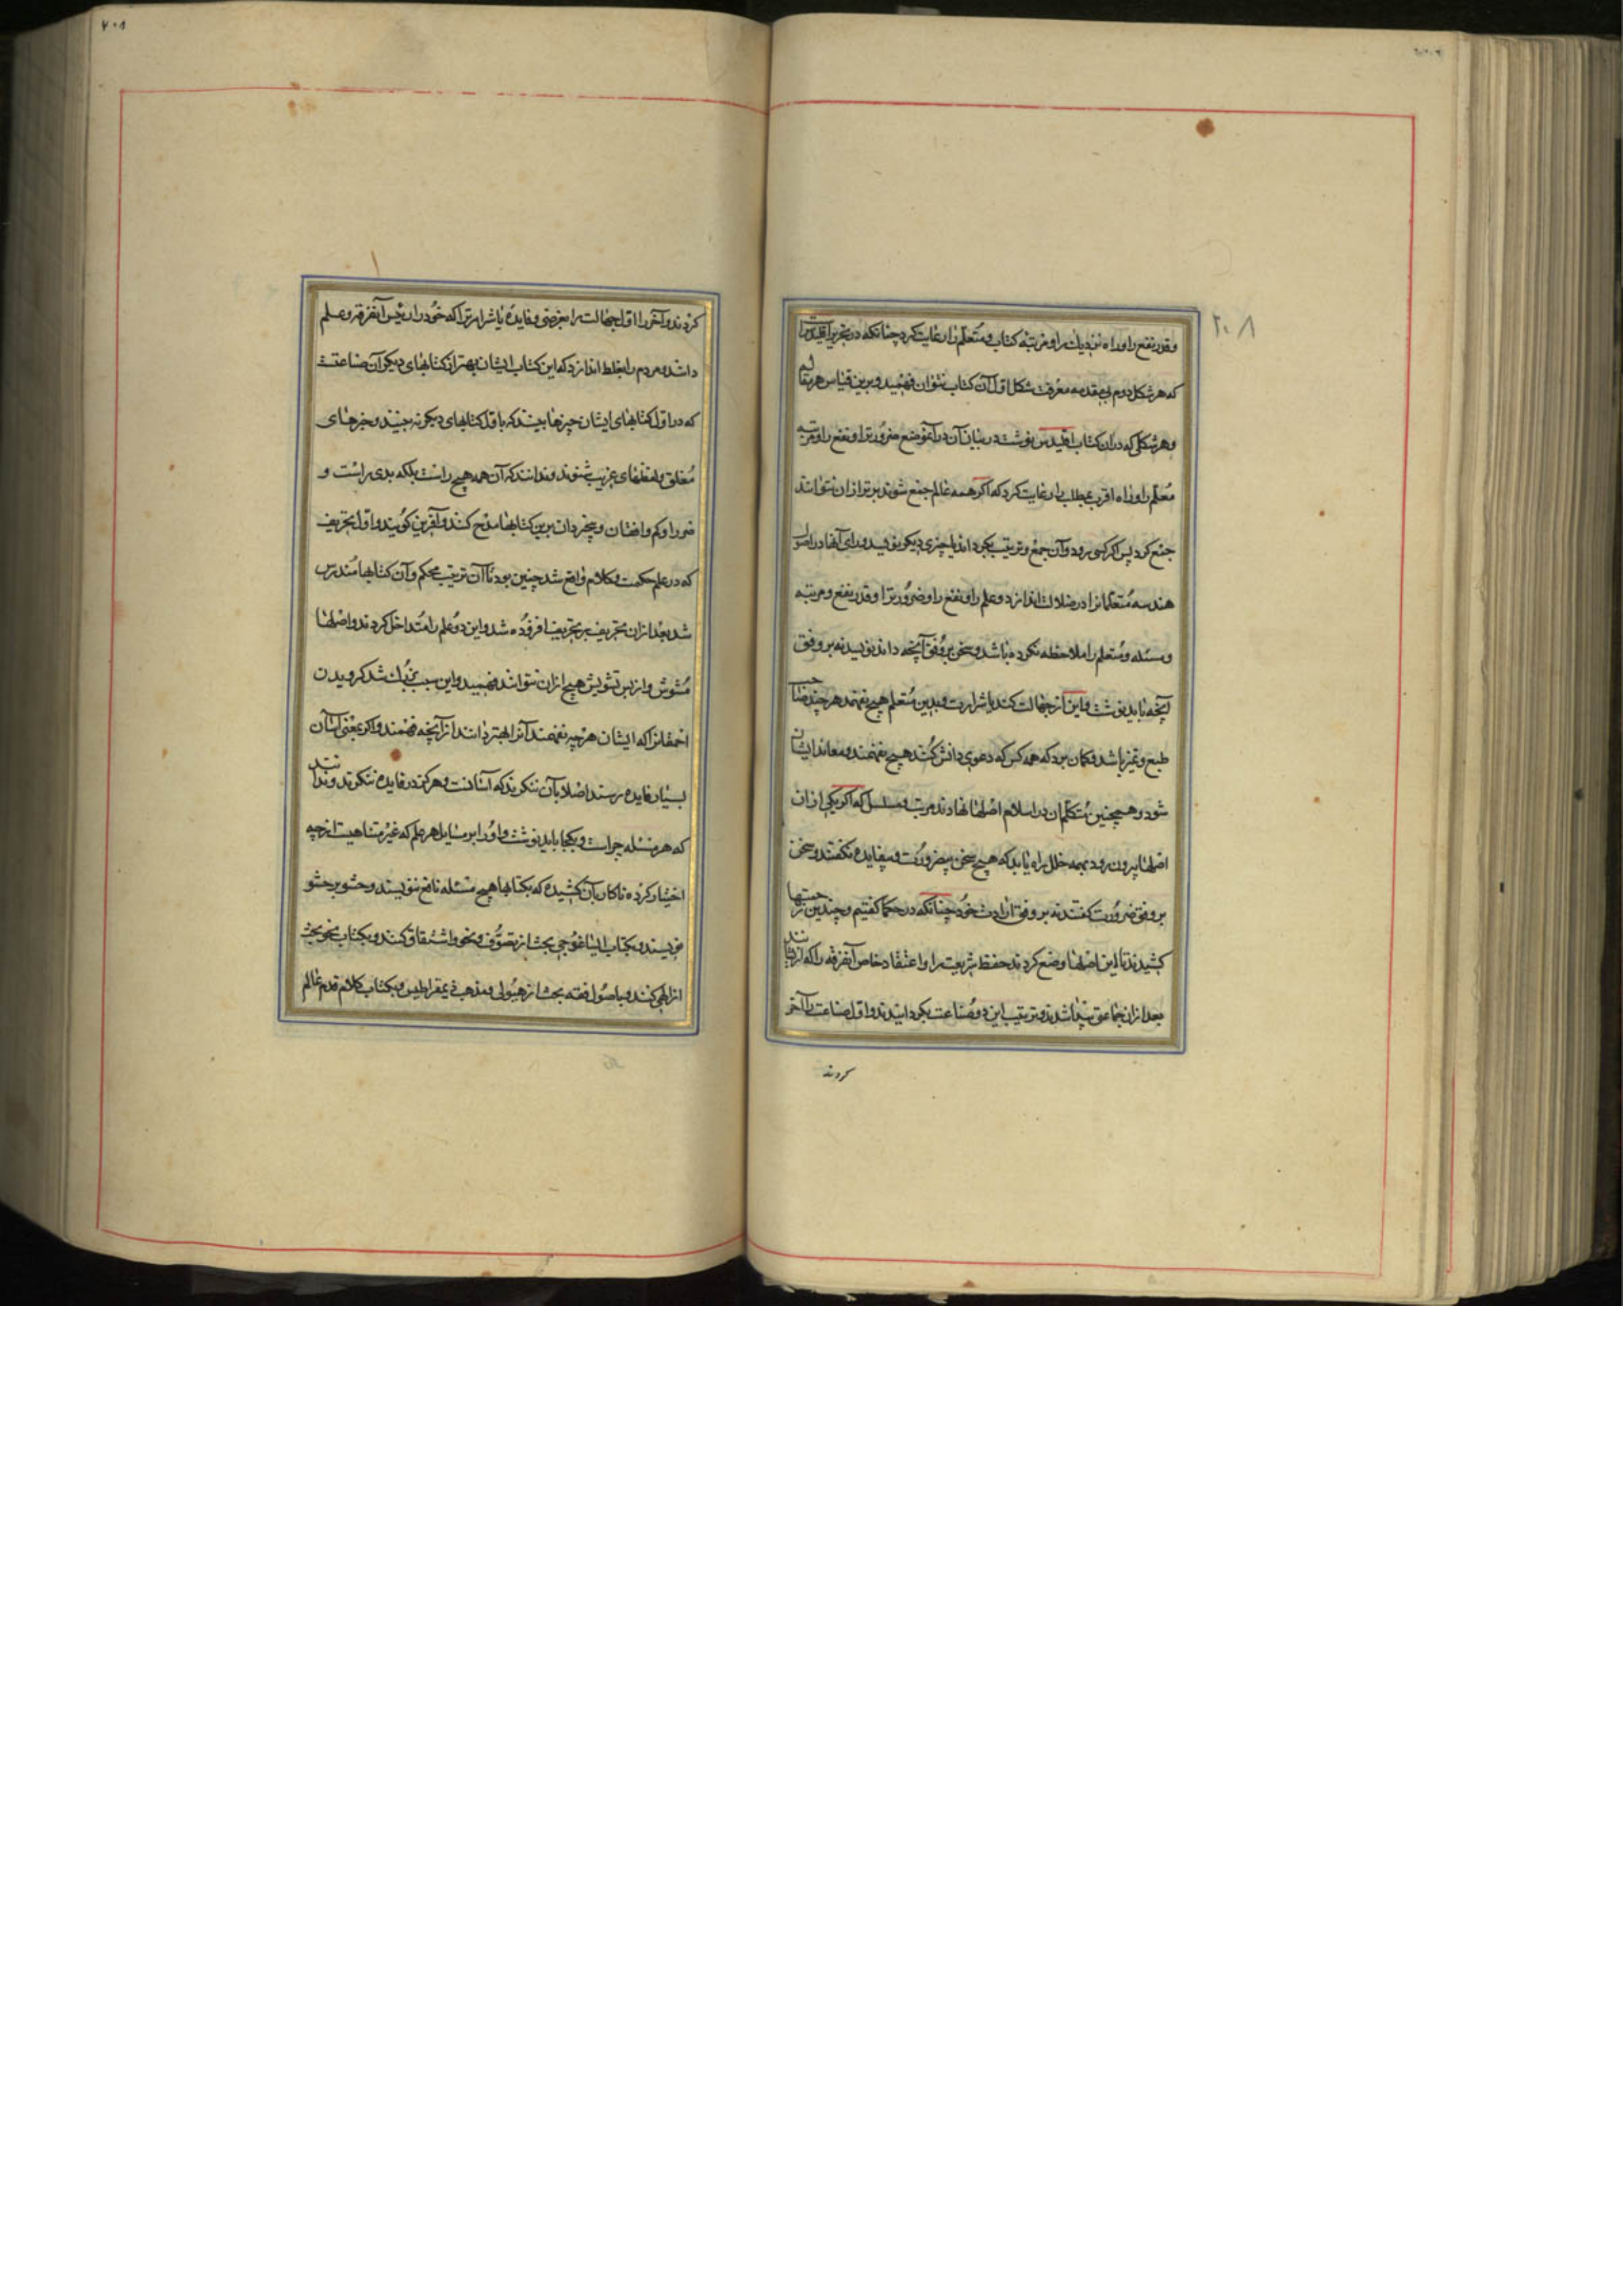 وقدر نفع را و راه نزدیك را و مرتبهٔ کتاب و متعلم را رعایت کرد چنانکه در تحریر اقلیدس
که هر شکل دوم بی مقدمه معرفت شکل اول آن کتاب نتوان فهمید و برین قیاس هر مقاله
و هر شکلی که در آن کتاب اقلیدس نوشت در بیان آن در آنموضع ضرورترا و نفع را و مرتبه
معلم را و راه اقرب بمطلب را رعایت کرد که اگر همه عالم جمع شوند برتر از آن نتوانند
جمع کرد پس اگر کسی رود و آن جمع و ترتیب بگرداند یا چیزی دیگر نویسد ورای آنها در اصول
هندسه متعلمانرا در ضلالت اندازد و علم را و نفع را و ضرورترا و قدر نفع و مرتبه
و مسئله و متعلم را ملاحظه نکرده باشد و سخن بر وفق آنچه داند نویسد نه بر وفق
آنچه باید نوشت و این از جهالت کند یا شرارت و بدین متعلم هیچ نفهمد هر چند صاحب
طبع و تمیز باشد و گمان برد که همه کس که دعوی دانش کنند هیچ نفهمند و معاند ایشان
شود و همچنین متکلمان در اسلام اصلها نهادند مرتب و مسلسل که اگر یکی از آن
اصلها بیرون رود بهمه خلل راه یابد که هیچ سخن بیضرورت و بیفایده نگفتند و سخن
بر وفق ضرورت گفتند نه بر وفق ارادت خود چنانکه در حکما گفتیم و چندین زحمتها
کشیدند تا این اصلها وضع کردند حفظ شریعت را و اعتقاد خاص آنفرقه را که از
بعد از آن جماعتی پیدا شدند و ترتیب این دو صناعت بگردانیدند و اول صناعت را آخر
کردند
۲۰۸
کردند و آخر را اول جهالت را بغرضی و فایده یا شرارترا که خود را رئیس آنفرقه و علم
دانند و مردم را بغلط اندازد که این کتاب ایشان بهتر از کتابهای دیگر آن صناعتست
که در اول کتابهای ایشان چیزها بینند که باول کتابهای دیگر نه بینند و چیزهای
مغلق و لفظهای غریب شنوند و ندانند که آن همه هیچ راست بلکه بدی راست و
ضرر را و کم وافتان و بیخردان برین کتابها مدح کنند و آفرین گویند و اول تحریف
که در علم حکمت و کلام واقع شد چنین بود تا آن ترتیب محکم و آن کتابها مندرس
شد بعد از آن تحریف بر تحریف افزوده شد و این دو علم را متداخل کردند و اصلها
مشوش و از بس تشویش هیچ از آن نتوانند فهمید و این سبب بزرك شد گرویدن
احمقانرا که ایشان هر چه نفهمند آنرا بهتر دانند از آنچه فهمند و اگر بمعنی آسان
بسیار فایده رسند اصلا بآن ننگرند که آسانست و هرگز در فایده ننگرند و ندانند
که هر مسئله چراست و بکجا باید نوشت و او را بر مسایل هر علم که غیر متناهیست از چه
اختیار کرده تا کار بآن کشیده که بکتابها هیچ مسئله نافع ننویسند و حشو بر حشو
نویسند و بکتاب ایساغوجی بحث از تصوف و نحو و اشتقاق کنند و بکتاب نحو بحث
از الهی کنند و باصول فقه بحث از هیولی و مذهب ذیمقراطیس و بکتاب کلام قدم عالم
۲۰۸